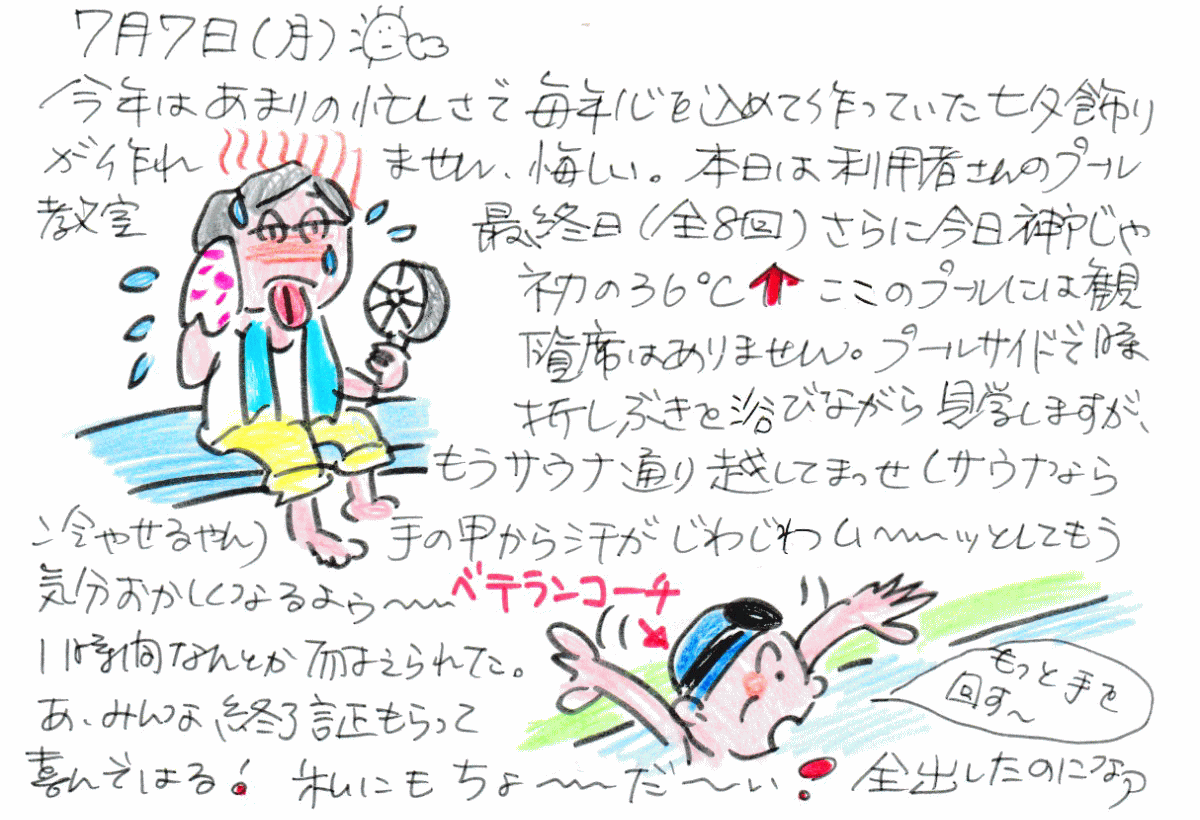 7月7日(月)
今年はあまりの忙しさで毎年心を込めて作っていた七夕飾り
が作れません、悔しい。本日は利用者さんのプール
教室 最終日(全8回)さらに今日神戸じゃ
初の36℃↑ここのプールには観
覧席はありません。プールサイドで時
折しぶきを浴びながら見学しますが、
もうサウナ通り越してまっせ(サウナなら
冷やせるやん)手の甲から汗がじわじわム〜〜ッとしてもう
気分おかしくなるよぅ〜〜
ベテランコーチ
1時間なんとか耐えられた。
もっと手を
回す〜
あ、みんな終了証もらって
喜んではる!私にもちょ〜〜だ〜い!全出したのになァ